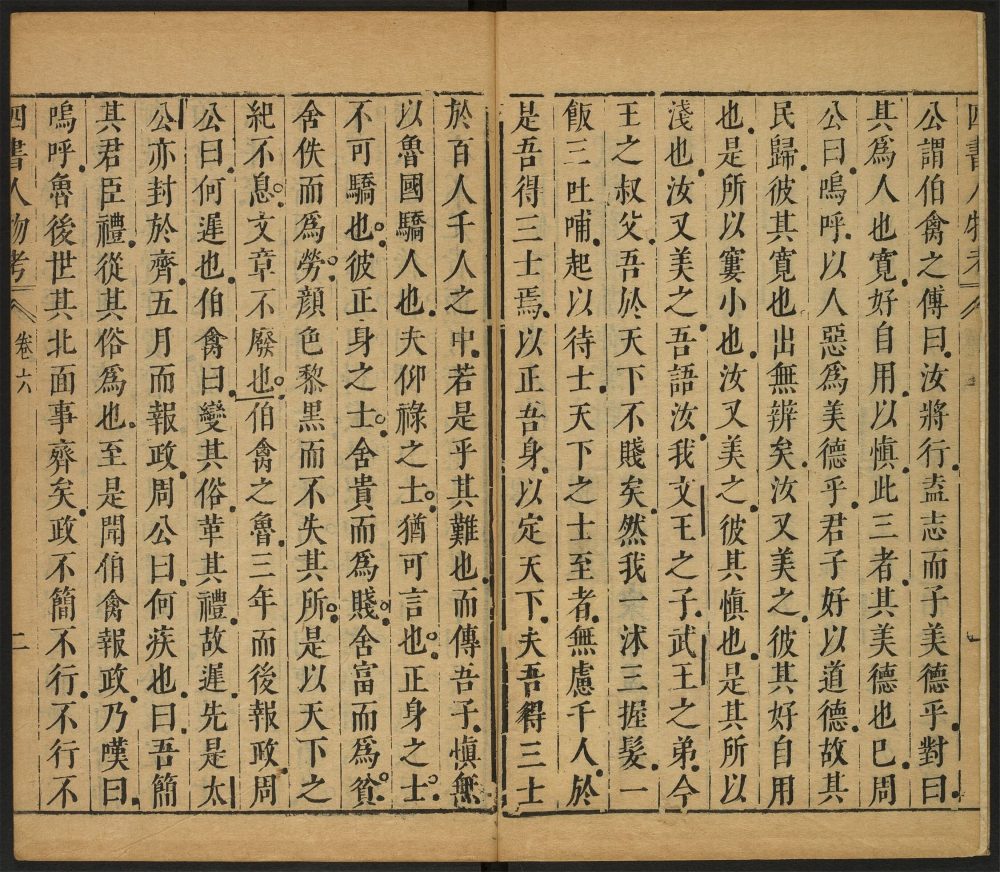 四書人物考
公謂伯禽之傅曰汝將行盍志而子美德乎對曰
其爲人也寬好自用以慎此三者其美德也已周
公曰嗚呼以人惡爲美德乎君子好以道德故其
民歸彼其寬也出無辨矣汝又美之彼其好自用
也是所以窶小也汝又美之彼其慎也是其所以
淺也汝又美之吾語汝我文王之子武王之弟今
王之叔父吾於天下不賤矣然我一沐三握髮一
飯三吐哺起以待士天下之士至者無慮千人於
是吾得三士焉以正吾身以定天下夫吾得三士
於百人千人之中若是乎其難也而傳吾子慎無
以魯國驕人也夫仰祿之士猶可言也正身之士
不可驕也彼正身之士舍貴而爲賤舍富而爲貧
舍佚而爲勞顔色黎黑而不失其所是以天下之
紀不息文章不廢也伯禽之魯三年而後報政周
公曰何遲也伯禽曰變其俗革其禮故遲先是太
公亦封於齊五月而報政周公曰何疾也曰吾簡
其君臣禮從其俗爲也至是聞伯禽報政乃嘆曰
嗚呼魯後世其北面事齊矣政不簡不行不行不
四書人物考 卷六 二